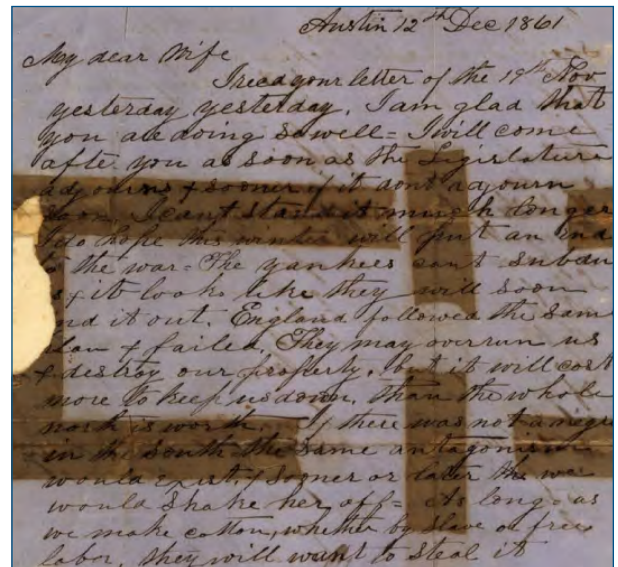 Austin 12th Dec 1861
My dear Wife
I recd your letter of the 19th Nov
yesterday yesterday. I am glad that
you are doing so well = I will come
after you as soon as the Legislature
adjourns & sooner if it dont adjourn
soon. I cant stand it much longer
I do hope this winter will put an end
to the war = The yankees cant subdu
us & it looks like they will soon
find it out. England followed the sam
plan & failed. They may overrun us
& destroy our property. but it will cost
more to keep us down, than the whole
north is worth. If there was not a negro
in the South the same antagonism
would exist, & sooner or later the we
would shake her off = As long as
we make cotton, whether by slave or free
labor, they will want to steal it